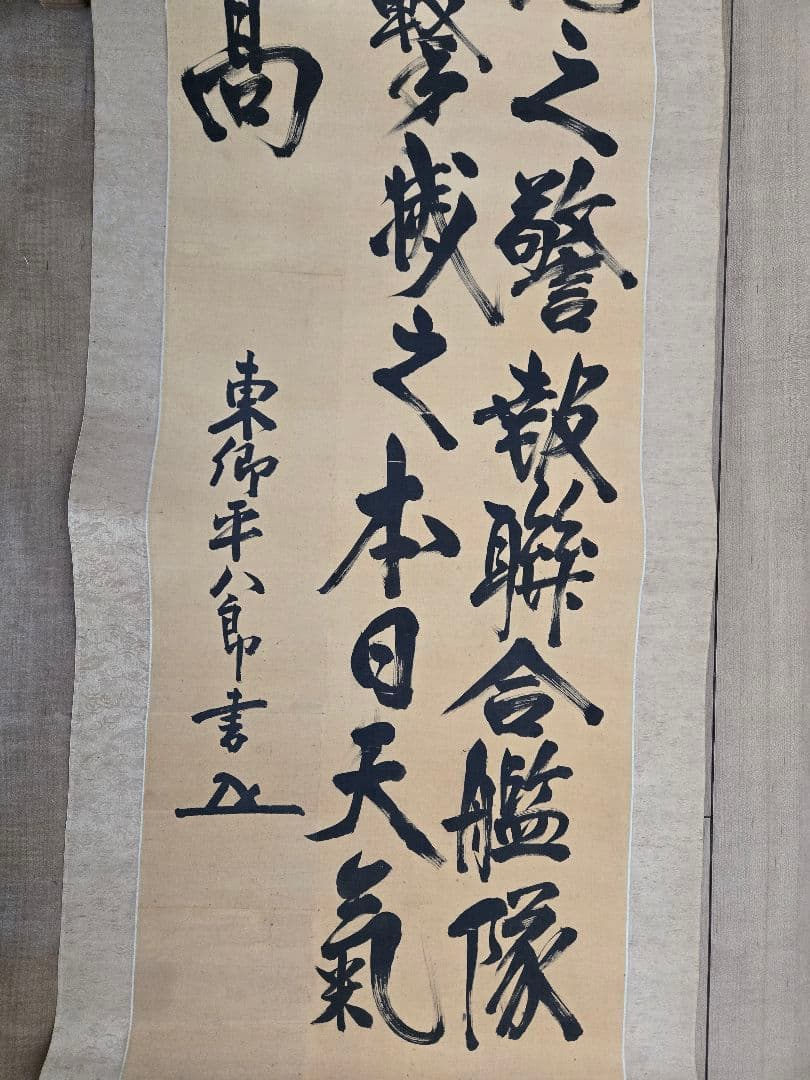 之警報聯合艦隊
撃滅之本日天氣
高
東郷平八郎書